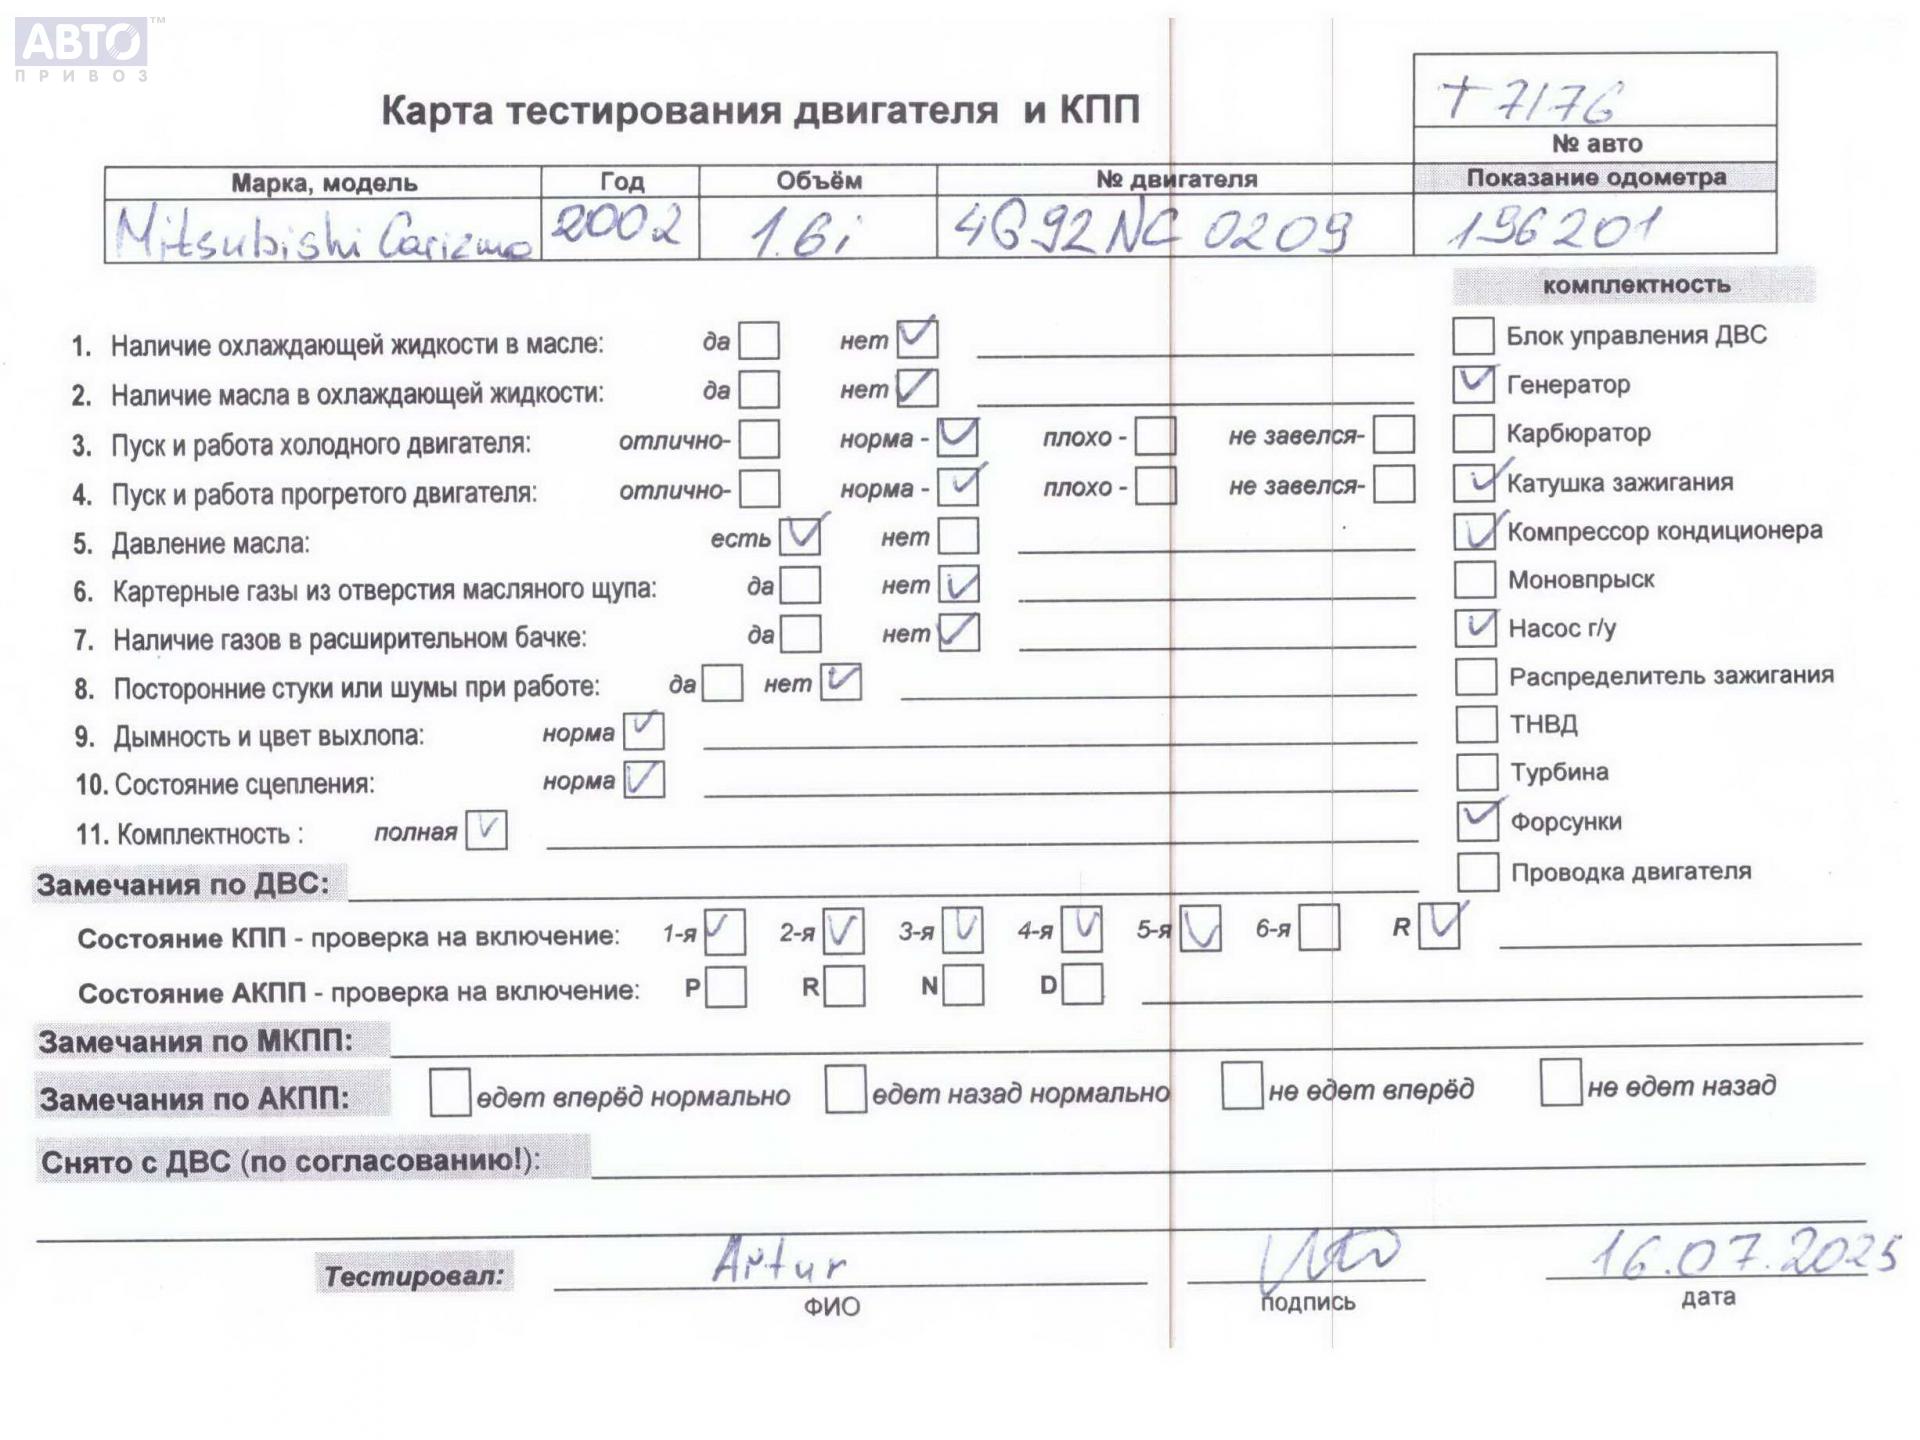 АВТО™
ПРИВОЗ
Карта тестирования двигателя и КПП
+7176
№ авто
Марка, модель Год Объём № двигателя Показание одометра
Mitsubishi Carizma 2002 1.6i 4G92NC0209 196201
комплектность
1. Наличие охлаждающей жидкости в масле: да нет ✓
Блок управления ДВС
2. Наличие масла в охлаждающей жидкости: да нет ✓
✓ Генератор
3. Пуск и работа холодного двигателя: отлично- норма - ✓ плохо - не завелся-
Карбюратор
4. Пуск и работа прогретого двигателя: отлично- норма - ✓ плохо - не завелся-
✓ Катушка зажигания
5. Давление масла: есть ✓ нет
✓ Компрессор кондиционера
6. Картерные газы из отверстия масляного щупа: да нет ✓
Моновпрыск
7. Наличие газов в расширительном бачке: да нет ✓
✓ Насос г/у
8. Посторонние стуки или шумы при работе: да нет ✓
Распределитель зажигания
9. Дымность и цвет выхлопа: норма ✓
ТНВД
10. Состояние сцепления: норма ✓
Турбина
11. Комплектность : полная ✓
✓ Форсунки
Замечания по ДВС:
Проводка двигателя
Состояние КПП - проверка на включение: 1-я ✓ 2-я ✓ 3-я ✓ 4-я ✓ 5-я ✓ 6-я R ✓
Состояние АКПП - проверка на включение: P R N D
Замечания по МКПП:
Замечания по АКПП: едет вперёд нормально едет назад нормально не едет вперёд не едет назад
Снято с ДВС (по согласованию!):
Тестировал: Artur 16.07.2025
ФИО подпись дата